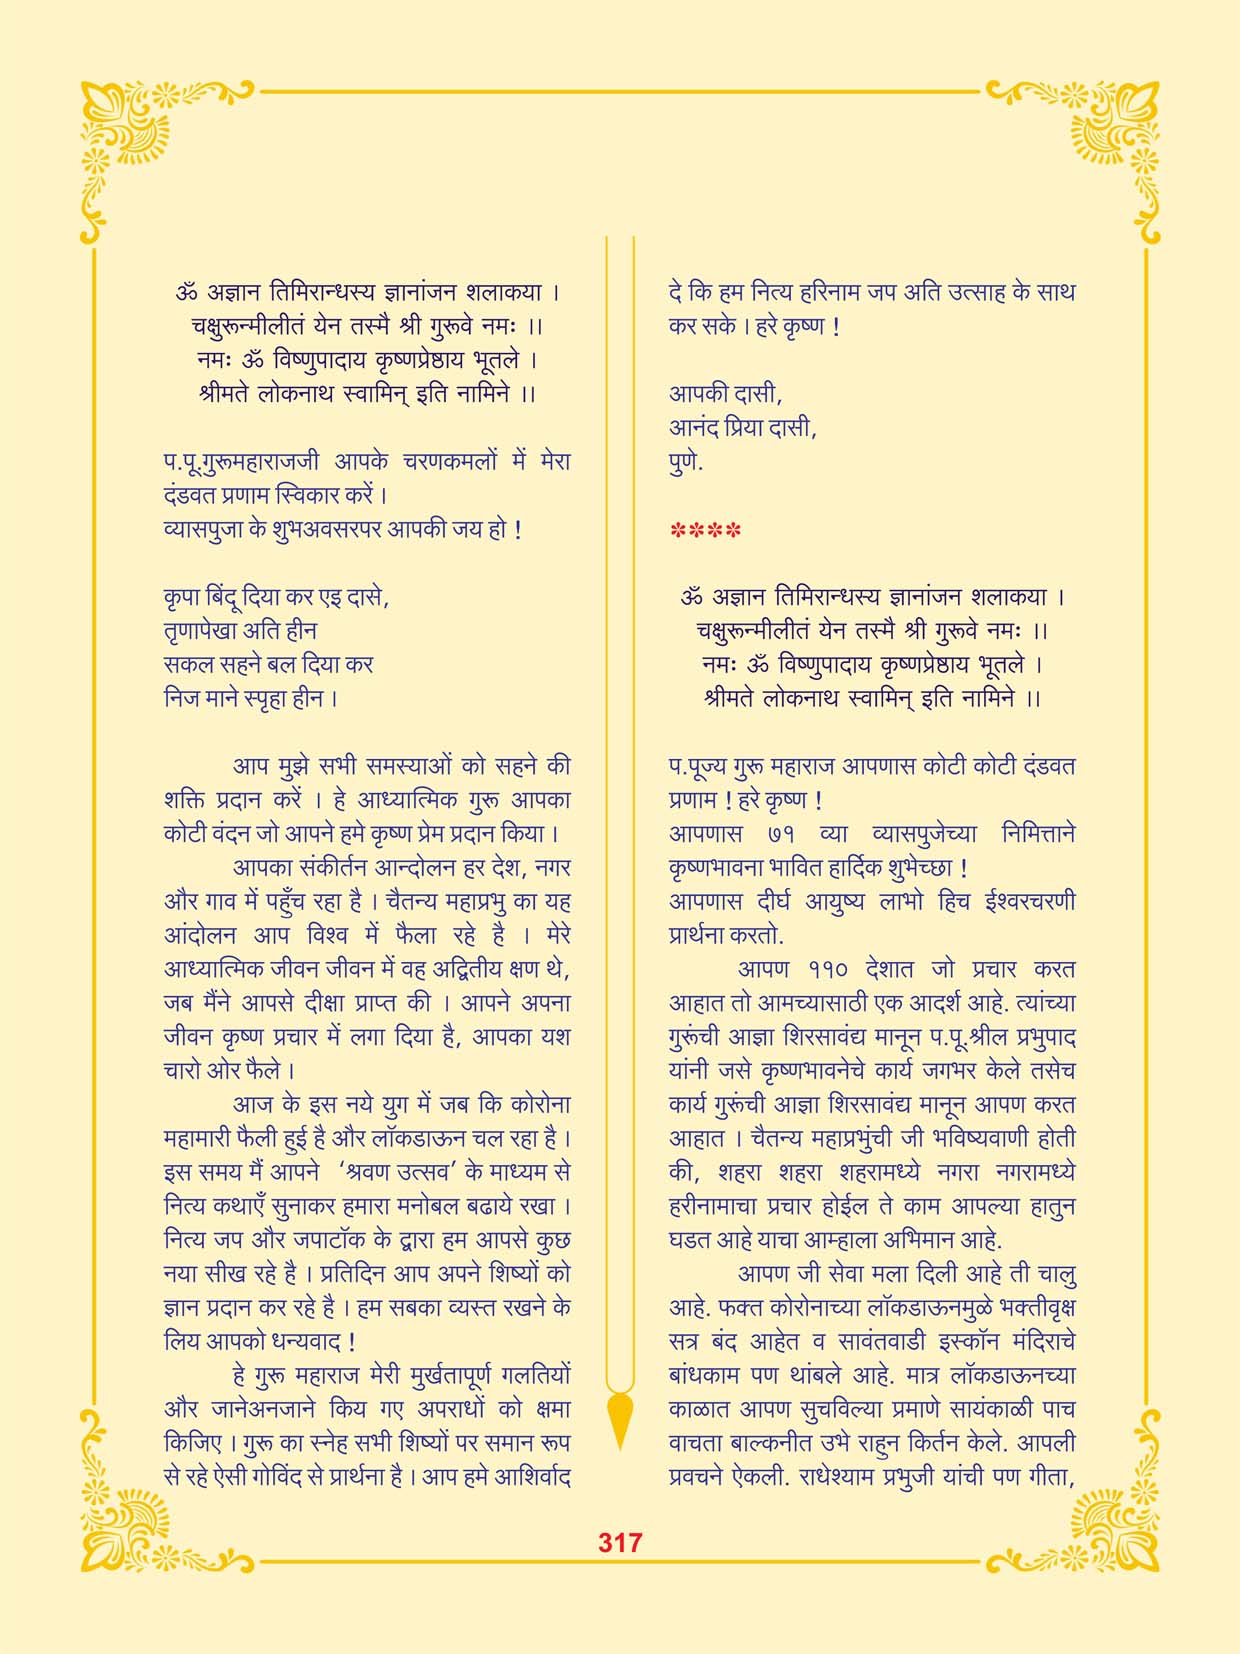 ॐ अज्ञान तिमिरान्धस्य ज्ञानांजन शलाकया ।
चक्षुरून्मीलीतं येन तस्मै श्री गुरूवे नमः ।।
नमः ॐ विष्णुपादाय कृष्णप्रेष्ठाय भूतले ।
श्रीमते लोकनाथ स्वामिन् इति नामिने ।।
प.पू.गुरूमहाराजजी आपके चरणकमलों में मेरा
दंडवत प्रणाम स्विकार करें ।
व्यासपुजा के शुभअवसरपर आपकी जय हो !
कृपा बिंदू दिया कर एइ दासे,
तृणापेखा अति हीन
सकल सहने बल दिया कर
निज माने स्पृहा हीन ।
आप मुझे सभी समस्याओं को सहने की
शक्ति प्रदान करें । हे आध्यात्मिक गुरू आपका
कोटी वंदन जो आपने हमे कृष्ण प्रेम प्रदान किया ।
आपका संकीर्तन आन्दोलन हर देश, नगर
और गाव में पहुँच रहा है । चैतन्य महाप्रभु का यह
आंदोलन आप विश्व में फैला रहे है । मेरे
आध्यात्मिक जीवन जीवन में वह अद्वितीय क्षण थे,
जब मैंने आपसे दीक्षा प्राप्त की । आपने अपना
जीवन कृष्ण प्रचार में लगा दिया है, आपका यश
चारो ओर फैले ।
आज के इस नये युग में जब कि कोरोना
महामारी फैली हुई है और लॉकडाऊन चल रहा है ।
इस समय मैं आपने ‘श्रवण उत्सव’ के माध्यम से
नित्य कथाएँ सुनाकर हमारा मनोबल बढाये रखा ।
नित्य जप और जपाटॉक के द्वारा हम आपसे कुछ
नया सीख रहे है । प्रतिदिन आप अपने शिष्यों को
ज्ञान प्रदान कर रहे है । हम सबका व्यस्त रखने के
लिय आपको धन्यवाद !
हे गुरू महाराज मेरी मुर्खतापूर्ण गलतियों
और जानेअनजाने किय गए अपराधों को क्षमा
किजिए । गुरू का स्नेह सभी शिष्यों पर समान रूप
से रहे ऐसी गोविंद से प्रार्थना है । आप हमे आशिर्वाद
दे कि हम नित्य हरिनाम जप अति उत्साह के साथ
कर सके । हरे कृष्ण !
आपकी दासी,
आनंद प्रिया दासी,
पुणे.
****
ॐ अज्ञान तिमिरान्धस्य ज्ञानांजन शलाकया ।
चक्षुरून्मीलीतं येन तस्मै श्री गुरूवे नमः ।।
नमः ॐ विष्णुपादाय कृष्णप्रेष्ठाय भूतले ।
श्रीमते लोकनाथ स्वामिन् इति नामिने ।।
प.पूज्य गुरू महाराज आपणास कोटी कोटी दंडवत
प्रणाम ! हरे कृष्ण !
आपणास ७१ व्या व्यासपुजेच्या निमित्ताने
कृष्णभावना भावित हार्दिक शुभेच्छा !
आपणास दीर्घ आयुष्य लाभो हिच ईश्वरचरणी
प्रार्थना करतो.
आपण ११० देशात जो प्रचार करत
आहात तो आमच्यासाठी एक आदर्श आहे. त्यांच्या
गुरूंची आज्ञा शिरसावंद्य मानून प.पू.श्रील प्रभुपाद
यांनी जसे कृष्णभावनेचे कार्य जगभर केले तसेच
कार्य गुरूंची आज्ञा शिरसावंद्य मानून आपण करत
आहात । चैतन्य महाप्रभुंची जी भविष्यवाणी होती
की, शहरा शहरा शहरामध्ये नगरा नगरामध्ये
हरीनामाचा प्रचार होईल ते काम आपल्या हातुन
घडत आहे याचा आम्हाला अभिमान आहे.
आपण जी सेवा मला दिली आहे ती चालु
आहे. फक्त कोरोनाच्या लॉकडाऊनमुळे भक्तीवृक्ष
सत्र बंद आहेत व सावंतवाडी इस्कॉन मंदिराचे
बांधकाम पण थांबले आहे. मात्र लॉकडाऊनच्या
काळात आपण सुचविल्या प्रमाणे सायंकाळी पाच
वाचता बाल्कनीत उभे राहुन किर्तन केले. आपली
प्रवचने ऐकली. राधेश्याम प्रभुजी यांची पण गीता,
317